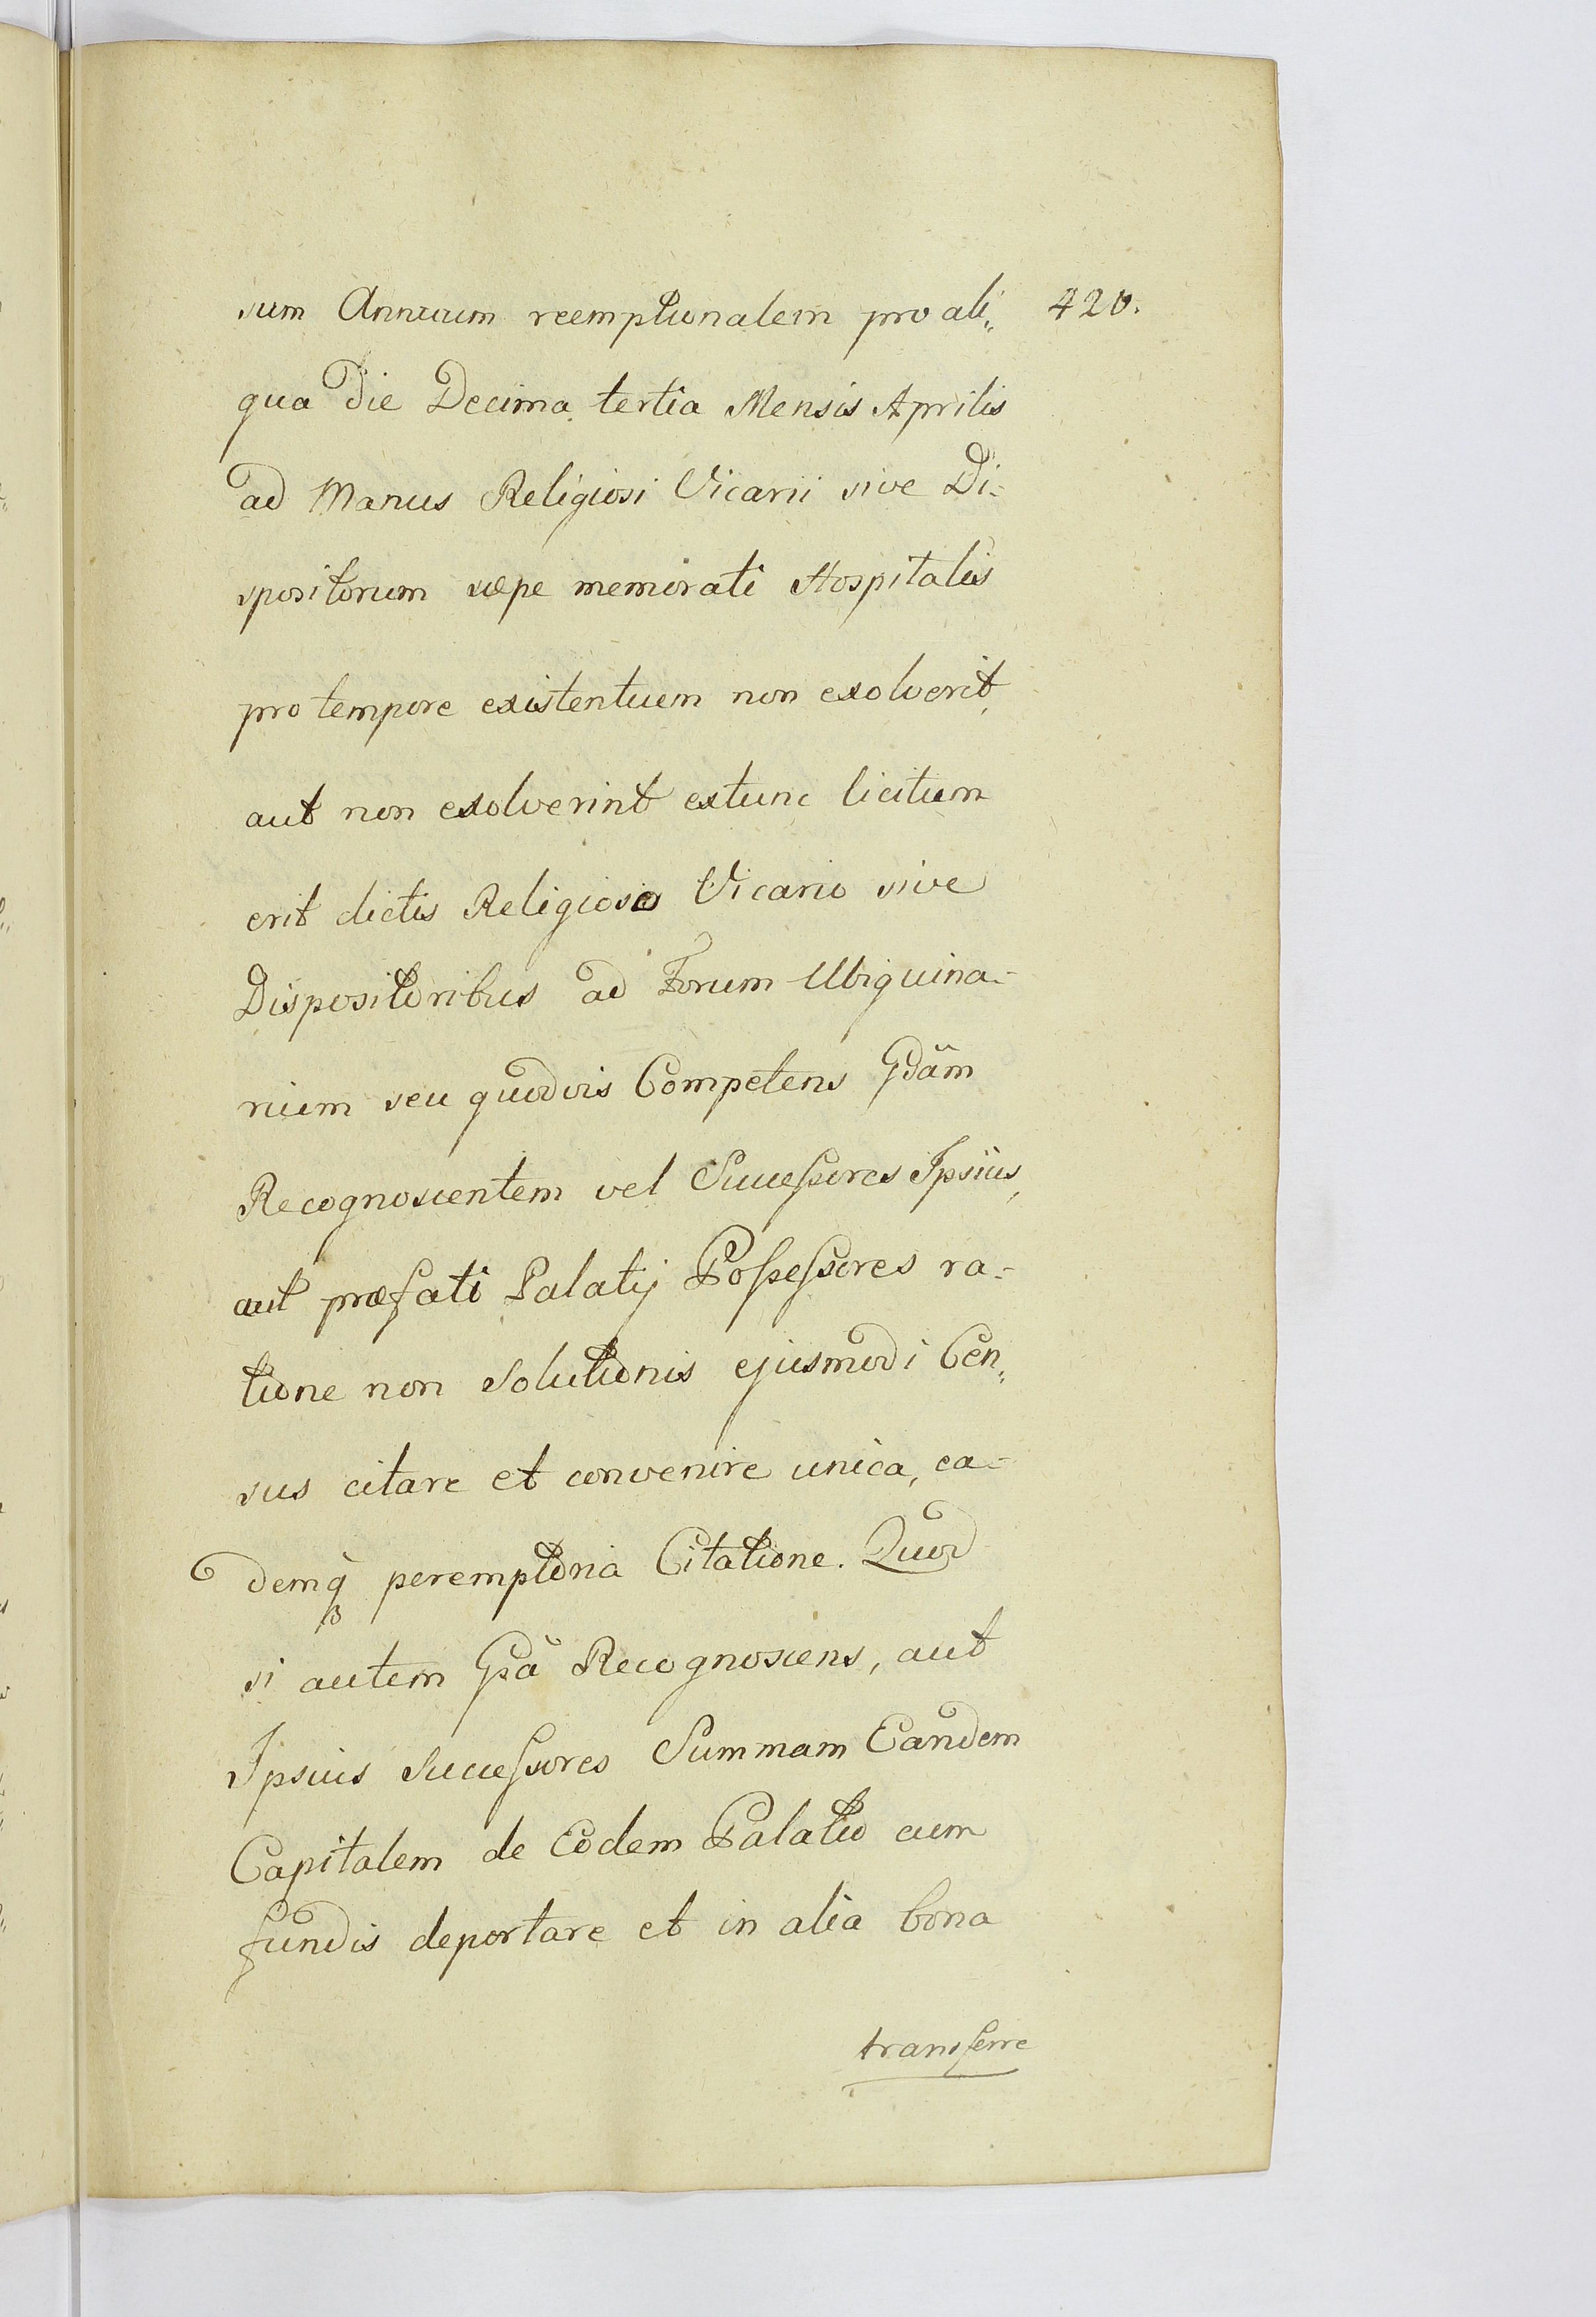 sum Annuum reemptionalem pro ali„ 420.
qua die Decima tertia Mensis Aprilis
ad Manus Religiosi Vicarii sive Di-
spositorum sæpe memorati Hospitalis
pro tempore existentium non exolverit,
aut non exolverint extunc licitum
erit dictis Religioso Vicario sive
Dispositoribus ad Forum Ubiquina-
rium seu quodvis Competens Gdām
Recognoscentem vel Successores Ipsius,
aut præfati Palatij Possessores ra-
tione non Solutionis ejusmodi Cen„
sus citare et convenire unica, ea-
demq3 peremptoria Citatione. Quod
si autem Recognoscens, aut
Ipsius Successores Summam Eandem
Capitalem de Eodem Palatio cum
fundis deportare et in alia bona
transferre